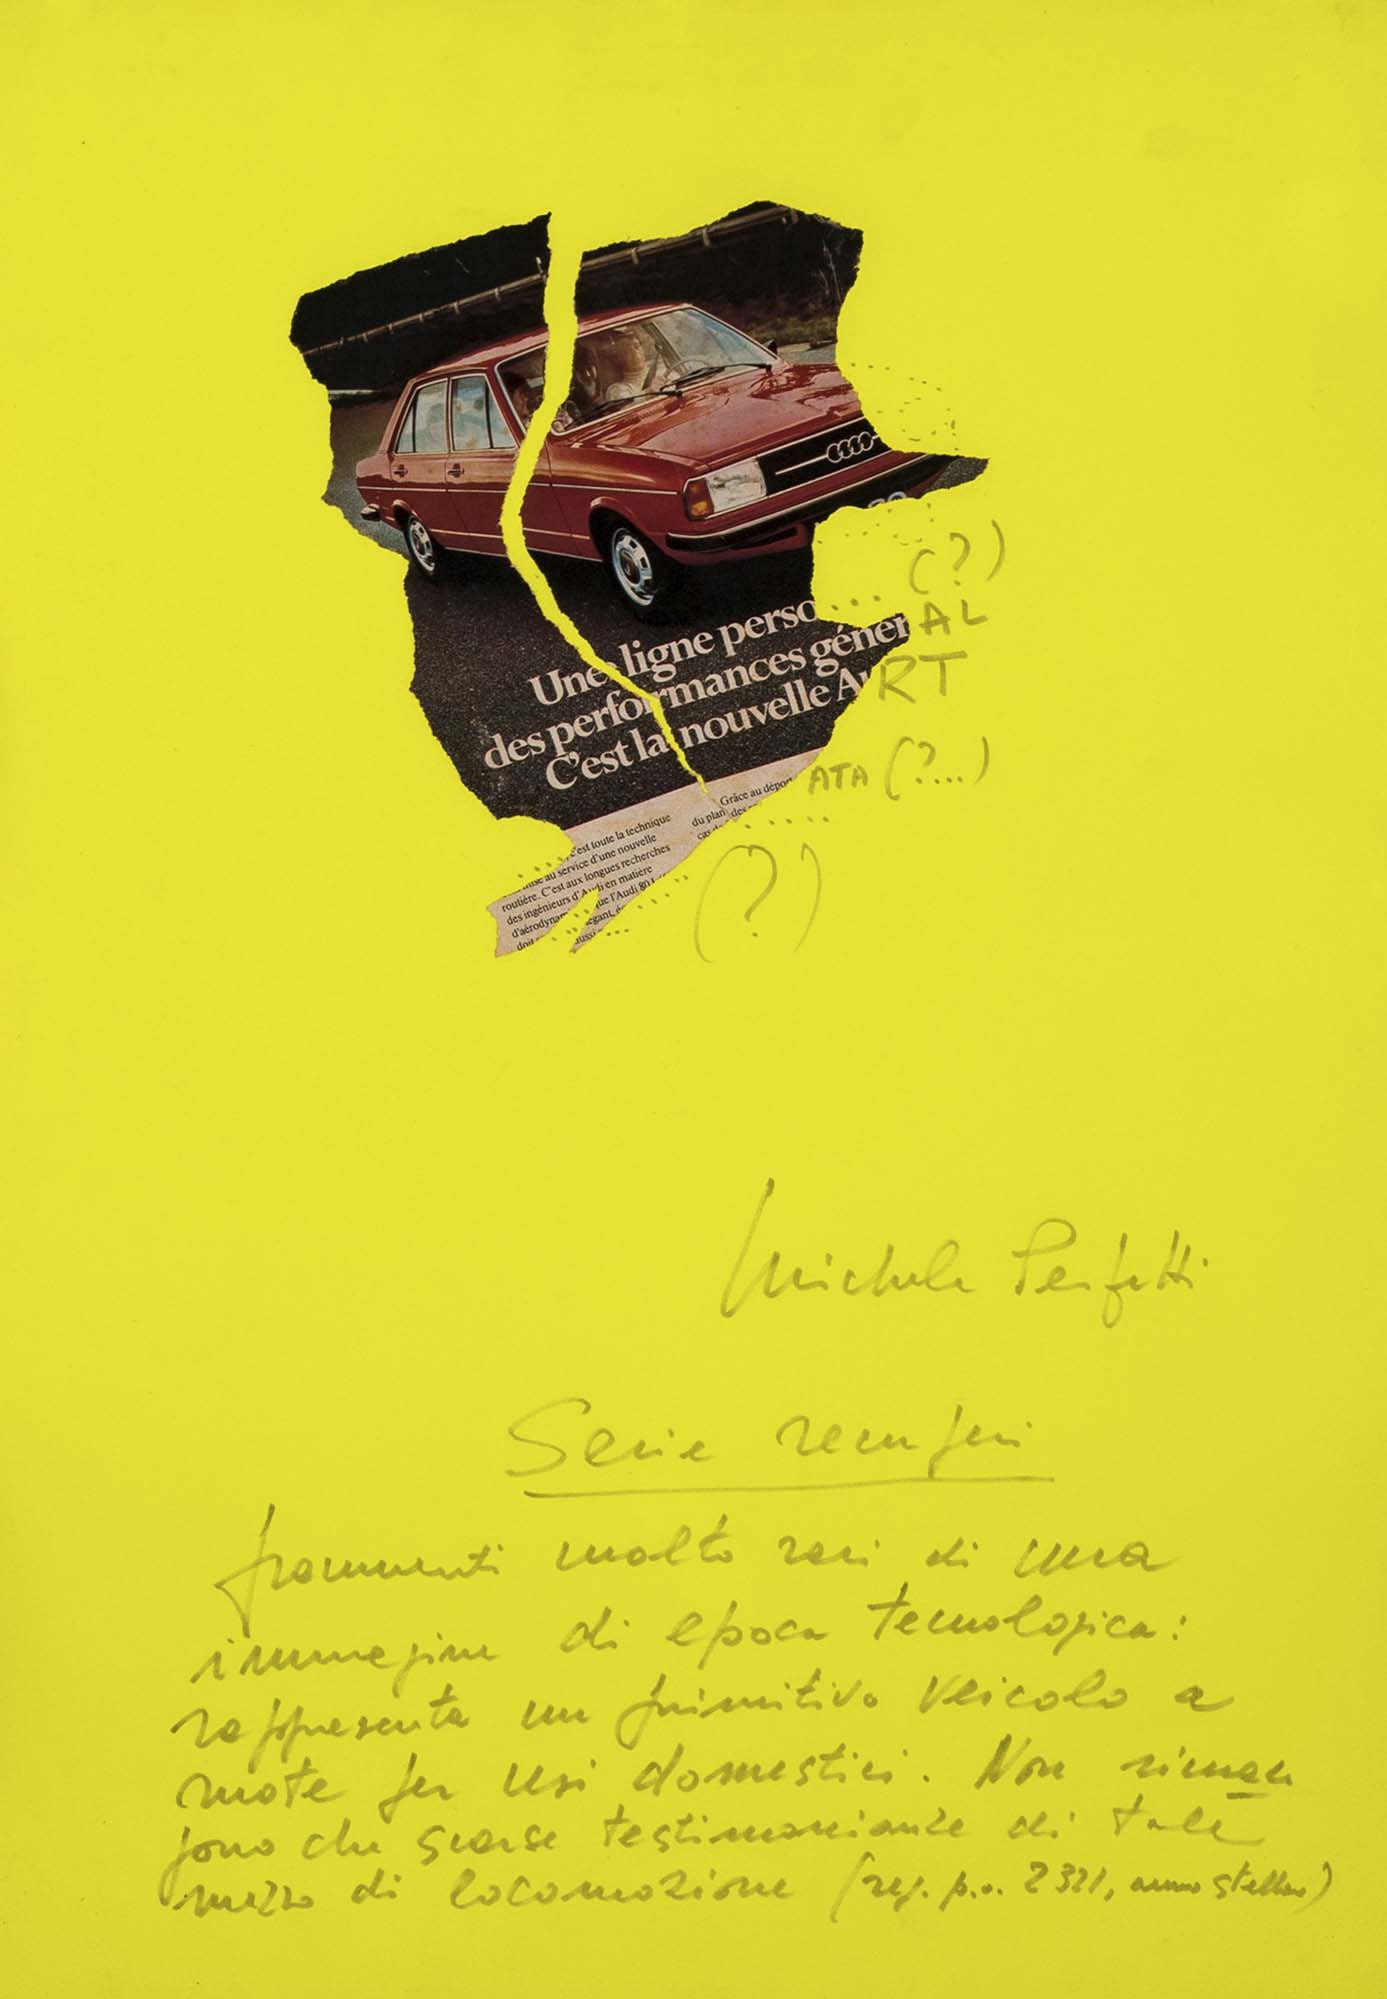 Une ligne perso ... (?)
des performances génerAL
C'est la nouvelle AuRT
ATA (?....)
Grâce au dépor
du plan des
cas de
c'est toute la technique
mise au service d'une nouvelle
routière. C'est aux longues recherches
des ingénieurs d'Audi en matière
d'aérodynam que l'Audi 80
doit égant,
aussi
(?)
Michele Perfetti
Serie recuperi
frammenti molto rari di una
immagine di epoca tecnologica:
rappresenta un primitivo veicolo a
ruote per usi domestici. Non riman
gono che scarse testimonianze di tale
mezzo di locomozione (rep. p.o. 2321, anno stellare)